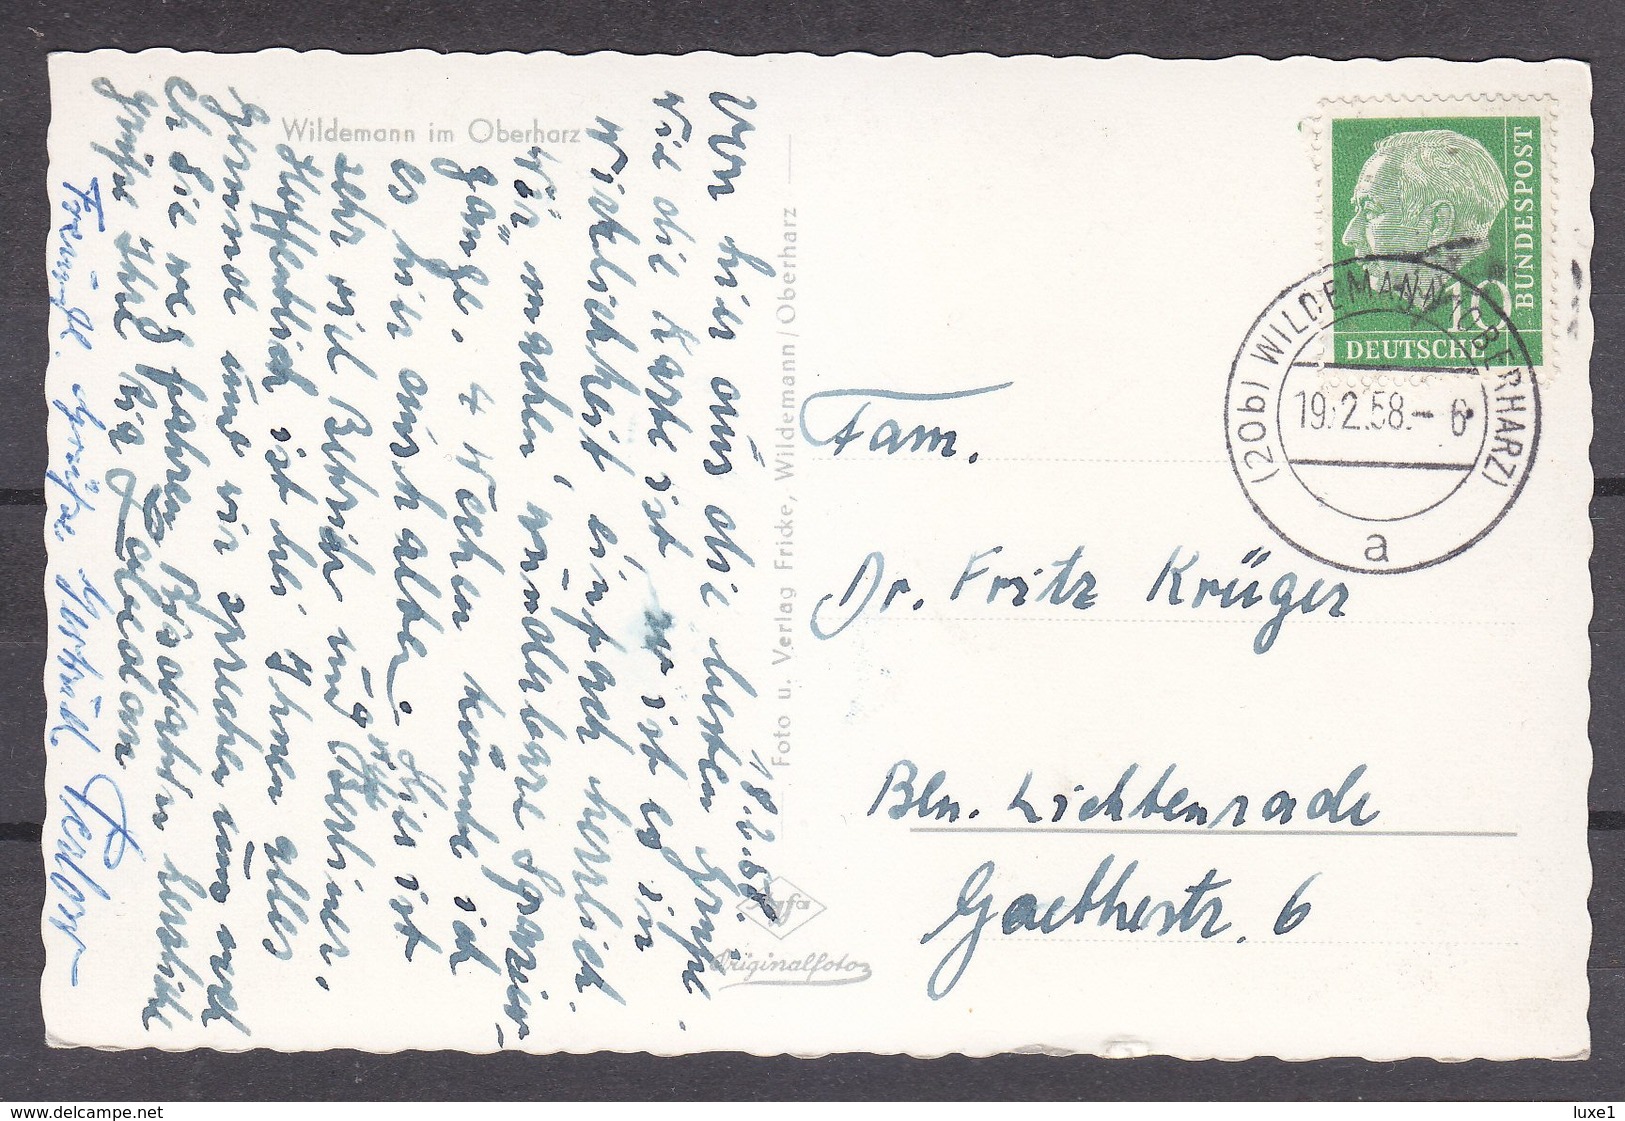 Wildemann im Oberharz
18.2.58.
Von hier aus die besten Grüße.
Wie die Karte ist so ist es in
Wirklichkeit, einfach herrlich.
Wir machen wunderbare Spazier-
gänge. 4 Wochen könnte ich
es hier aushalten. Hier ist
sehr viel Betrieb und Berliner.
Hoffentlich ist bei Ihnen alles
gesund und wir sprechen uns noch
eh Sie wegfahren. herzliche
Grüße Ihre
Grüße
Foto u. Verlag Fricke, Wildemann/Oberharz
Agfa
Originalfoto
DEUTSCHE
BUNDESPOST
10
(20b) WILDEMANN (OBERHARZ)
19.2.58.-6
a
Fam.
Dr. Fritz Krüger
Bln. Lichtenrade
Goethestr. 6
luxe1
http://www.delcampe.net